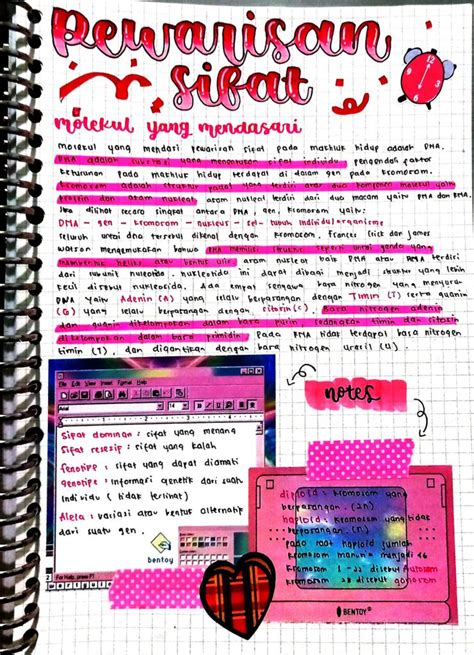 Pewarisan
sifat
12
3
6
9
molekul yang mendasari
molekul yang mendari pewarisan sifat pada makhluk hidup adalah DNA.
DNA adalah yang menentukan sifat individu. pengendali faktor
keturunan pada makhluk hidup terdapat di dalam gen pada kromosom.
kromosom adalah struktur padat yang terdiri atas dua komponen molekul yaitu
protein dan asam nukleat. asam nukleat terdiri dari dua macam yaitu DNA dan RNA.
Jika dilihat secara singkat antara DNA, gen, kromosom yaitu:
DNA - gen - kromosom - nukleus - sel - tubuh individu/organisme
seluruh untai DNA tersebut dikenal dengan kromosom. Frances Crick dan James
Watson mengemukakan bahwa DNA memiliki struktur seperti untai ganda yang
membentuk heliks atau asam nukleat baik DNA atau RNA terdiri
dari subunit nukleotida. nukleotida ini dapat dibagi menjadi struktur yang lebih
kecil disebut nukleosida. Ada empat senyawa basa nitrogen yang menyusun
DNA yaitu Adenin (A) yang selalu berpasangan dengan Timin (T) serta guanin
(G) yang selalu berpasangan dengan, (C). Basa nitrogen adenin
dan guanin dikelompokan dalam basa purin, sedangkan timin dan sitosin
dikelompokan dalam basa Pada RNA tidak terdapat basa nitrogen
timin (T), dan digantikan dengan basa nitrogen urasil (U).
File Edit View Insert Format Help
Arial
14
sifat dominan : sifat yang menang
sifat resesip : sifat yang kalah
fenotipe : sifat yang dapat diamati
genotipe : informasi genetik dari suatu
individu ( tidak terlihat)
Alela : variasi atau bentuk alternatif
dari suatu gen.
bentoy
For Help, press F1
notes
diploid : kromosom yang
berpasangan. (2n)
haploid : kromosom yang tidak
berpasangan. (n)
pada saat haploid jumlah
kromosom manusia menjadi 46
kromosom 1 - 22 disebut Autosom
kromosom 23 disebut gonosom
BENTOY®